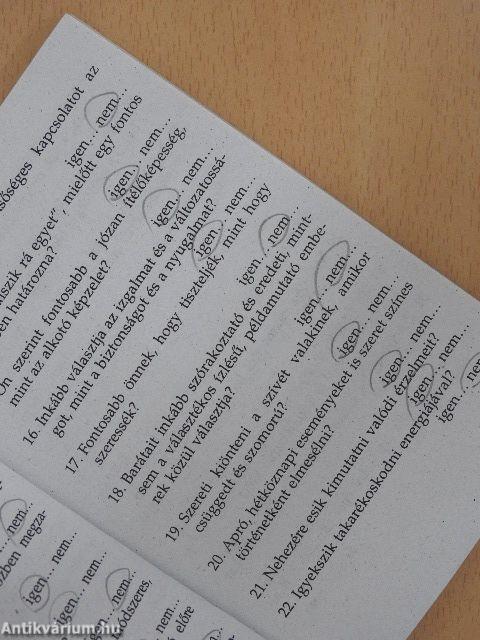 kapcsolatot az
igen... nem...
rá egyet", mielőtt egy fontos
határozna? igen... nem...
Ön szerint fontosabb a józan ítélőképesség,
mint az alkotó képzelet? igen... nem...
16. Inkább választja az izgalmat és a változatossá-
got, mint a biztonságot és a nyugalmat? igen... nem...
17. Fontosabb önnek, hogy tiszteljék, mint hogy
szeressék? igen... nem...
18. Barátait inkább szórakoztató és eredeti, mint-
sem a választékos ízlésű, példamutató embe-
rek közül választja? igen... nem...
19. Szereti kiönteni a szívét valakinek, amikor
csüggedt és szomorú? igen... nem...
20. Apró, hétköznapi eseményeket is szeret színes
történetként elmesélni? igen... nem...
21. Nehezére esik kimutatni valódi érzelmeit?
igen... nem...
22. Igyekszik takarékoskodni energiájával?
igen...
nem...
megza-
igen... nem...
igen... nem...
nem...
előre
Antikvárium.hu